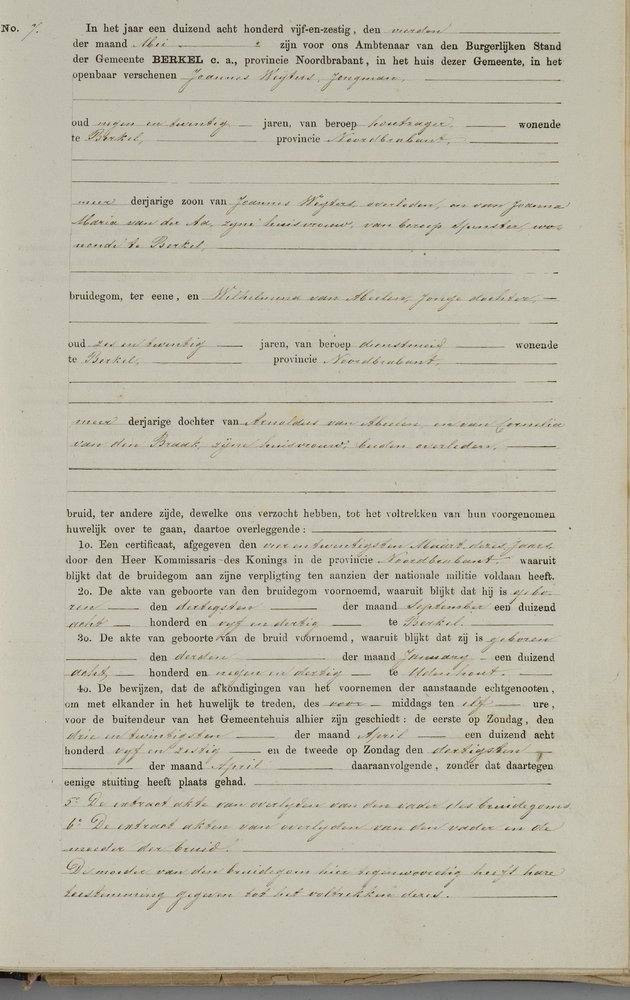 No. 7. In het jaar een duizend acht honderd vijf-en-zestig, den vierden
der maand Mei zijn voor ons Ambtenaar van den Burgerlijken Stand
der Gemeente BERKEL c. a., provincie Noordbrabant, in het huis dezer Gemeente, in het
openbaar verschenen Joannes Weyters, Jongman,
oud negen en twintig jaren, van beroep houtzager, wonende
te Berkel, provincie Noordbrabant,
meer derjarige zoon van Joannes Weyters, overleden, en van Joanna
Maria van der Aa, zijne huisvrouw, van beroep Spinster, wo-
nende te Berkel,
bruidegom, ter eene, en Wilhelmina van Abeelen, jonge dochter,
oud zes en twintig jaren, van beroep dienstmeid wonende
te Berkel, provincie Noordbrabant,
meer derjarige dochter van Arnoldus van Abeelen, en van Cornelia
van den Braak, zijne huisvrouw, beiden overleden,
bruid, ter andere zijde, dewelke ons verzocht hebben, tot het voltrekken van hun voorgenomen
huwelijk over te gaan, daartoe overleggende:
1o. Een certificaat, afgegeven den vier en twintigsten Maart dezes Jaars,
door den Heer Kommissaris des Konings in de provincie Noordbrabant, waaruit
blijkt dat de bruidegom aan zijne verpligting ten aanzien der nationale militie voldaan heeft.
2o. De akte van geboorte van den bruidegom voornoemd, waaruit blijkt dat hij is gebo-
ren den dertigsten der maand September een duizend
acht honderd en vyf en dertig te Berkel.
3o. De akte van geboorte van de bruid voornoemd, waaruit blijkt dat zij is geboren
den derden der maand January een duizend
acht, honderd en negen en dertig te Udenhout.
4o. De bewijzen, dat de afkondigingen van het voornemen der aanstaande echtgenooten,
om met elkander in het huwelijk te treden, des voor middags ten elf ure,
voor de buitendeur van het Gemeentehuis alhier zijn geschied: de eerste op Zondag, den
drie en twintigsten der maand April een duizend acht
honderd vyf en zestig en de tweede op Zondag den dertigsten
der maand April daaraanvolgende, zonder dat daartegen
eenige stuiting heeft plaats gehad.
5o De extract akte van overlyden van den vader des bruidegoms
6o De extract akten van overlyden van den vader en de
moeder der bruid.
De moeder van den bruidegom hier tegenwoordig heeft hare
toestemming gegeven tot het voltrekken dezes.